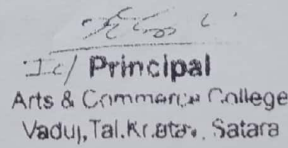 I/c Principal
Arts & Commerce College
Vaduj, Tal. Satara